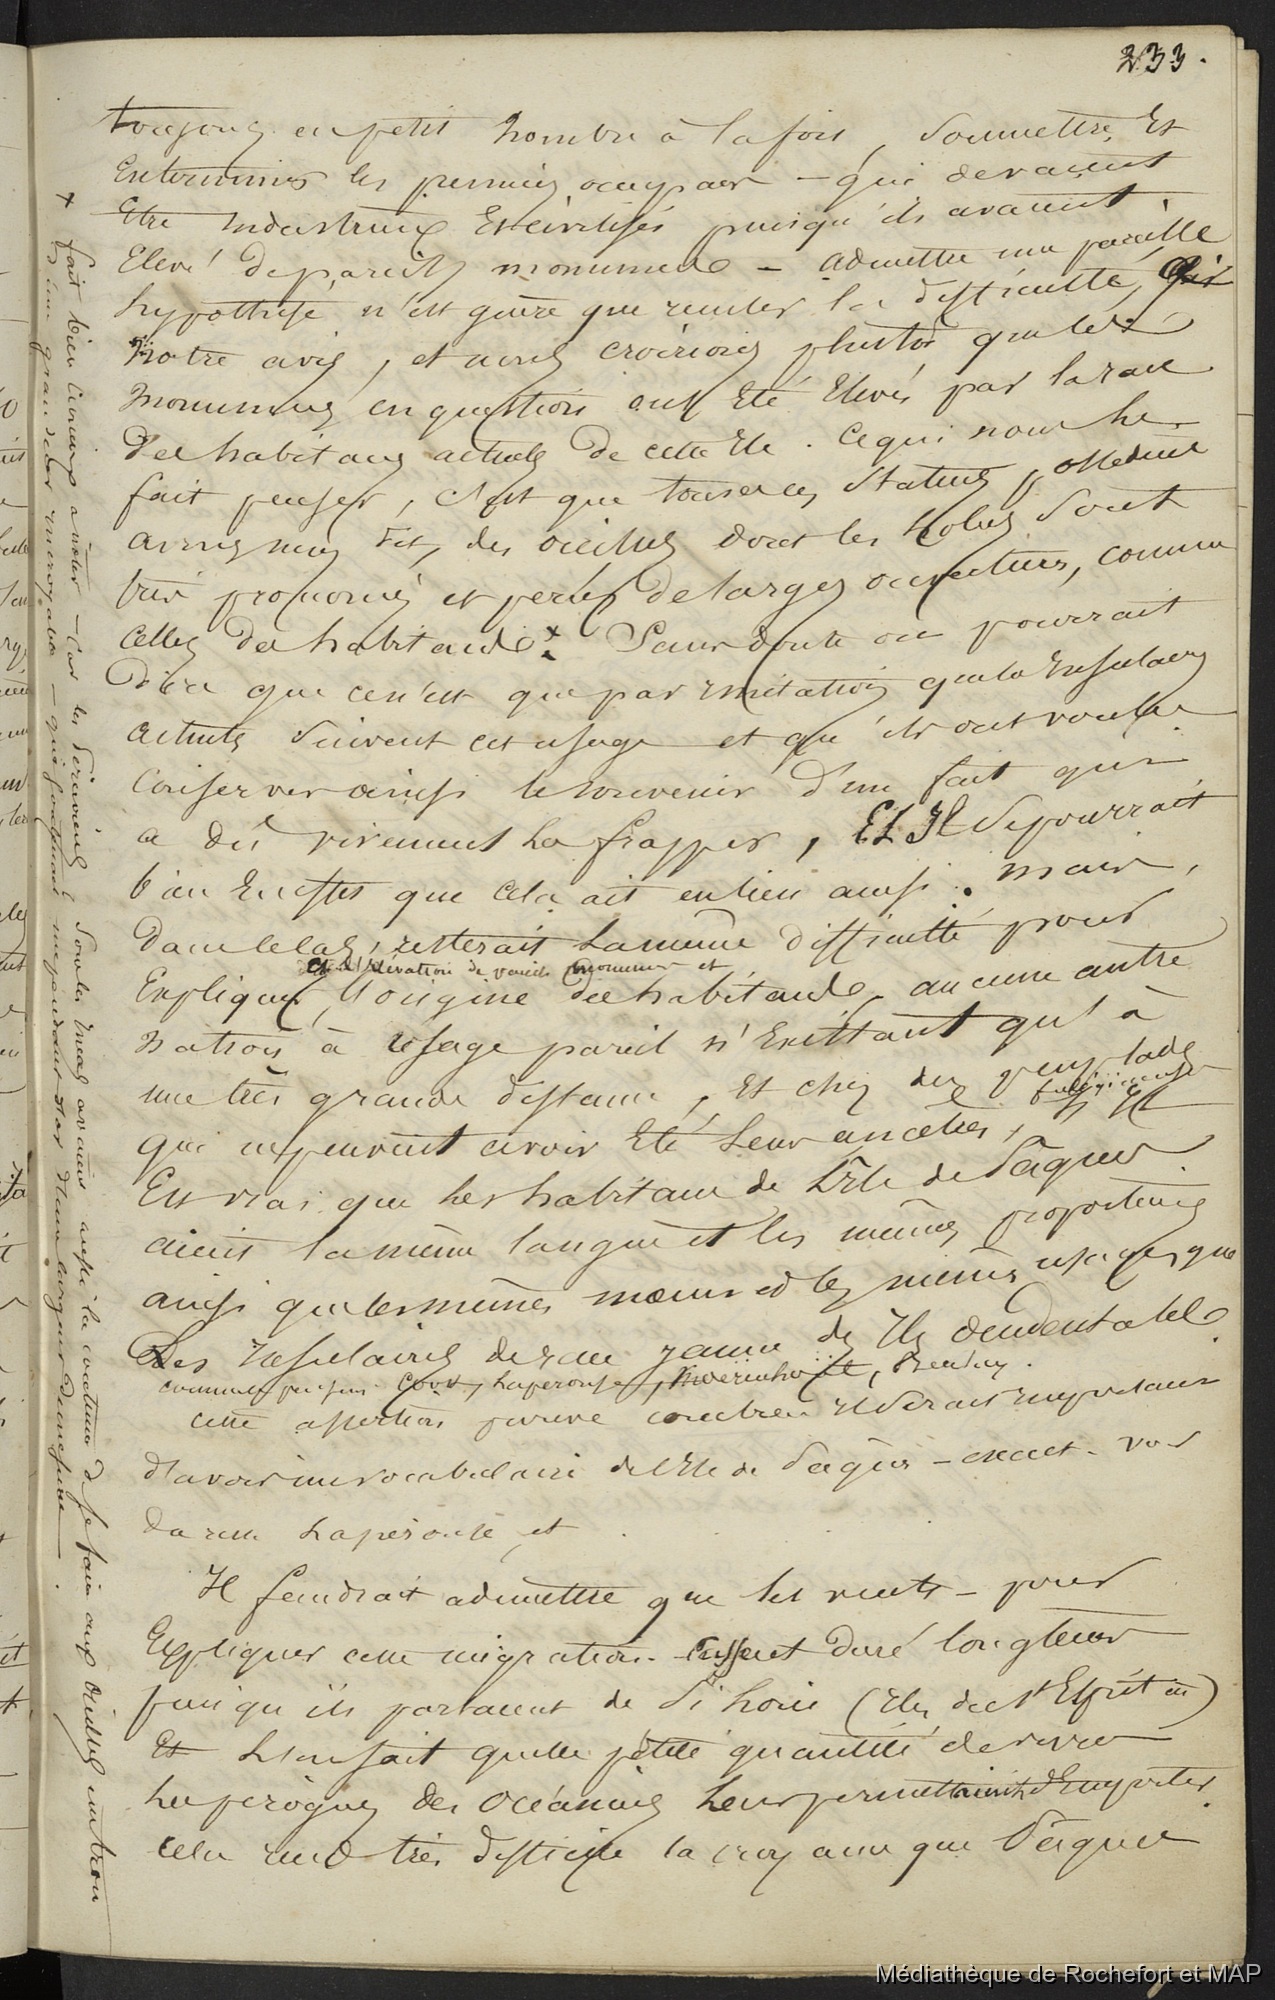 233.
toujours en petit nombre à la fois, soumettre et
exterminer les premiers occupans - qui devaient
être industrieux et civilisés puisqu'ils avaient
élevé de pareils monumens - admettre une pareille
hypothèse n'est guère que reculer la difficulté, à
notre avis, et nous croirions plustôt que les
monumens en question ont été élevés par la race
des habitans actuels de cette île. Ce qui nous le
fait penser, c'est que toutes ces statues possèdent
avons nous dit, des oreilles dont les lobes sont
très prononcés et percés de larges ouvertures, comme
celles des habitans. x Sans doute on pourrait
dire que ce n'est que par imitation que les insulaires
actuels suivent cet usage et qu'ils ont voulu
conserver ainsi le souvenir d'un fait qui
a dû vivement les frapper, Et Il se pourrait
bien en effet que cela ait eu lieu ainsi. mais,
dans le cas, resterait la même difficulté pour
et l'élévation de pareils monumens et
Expliquer l'origine des habitans, aucune autre
nation à usage pareil n'existant qu'à
une très grande distance, et chez des peuplades
qui ne peuvent avoir été leurs ancêtres, s'il
Est vrai que les habitans de l'île de Pâques
aient la même langue et les mêmes proportions
ainsi que les mêmes mœurs et les mêmes usages que
Les insulaires de race jaune des îles occidentales
comme Cook, Laperouse, Moerenhout, Beechey.
cette assertion prouve combien il serait important
d'avoir un vocabulaire de l'île de Pâques - exact - voir
dans Laperouse et
Il faudrait admettre que les vents - pour
Expliquer cette migration - Eussent duré longtems
puisqu'ils partaient de (îles du St Esprit)
Et l'on sait quelle petite quantité de vivres
les pirogues des océaniens leur permettaient d'emporter.
cela rend très difficile la croyance que Pâques
x fait bien curieux à noter - car les Péruviens sous les Incas avaient aussi la coutume de se faire aux oreilles un trou
d'une grandeur incroyable - qui soutenait un pendant d'or d'une largeur démesurée.
Médiathèque de Rochefort et MAP